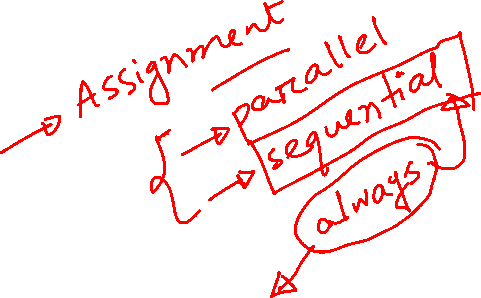 Assignment
parallel
sequential
always